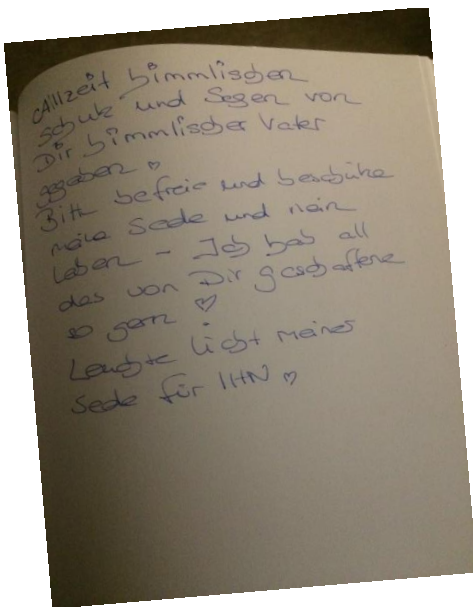 Allzeit himmlischen
Schutz und Segen von
Dir himmlischer Vater
gegeben ♡
Bitte befreie und beschütze
meine Seele und mein
Leben – Ich hab all
das von Dir geschaffene
so gern ♡
Leuchte Licht meiner
Seele für IHN ♡